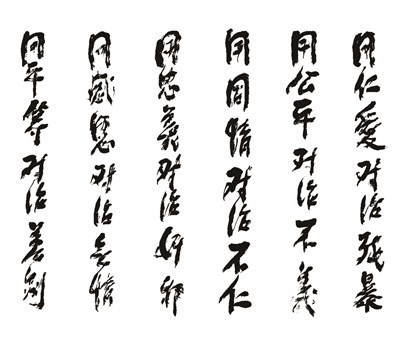 用仁愛对治残暴
用公平对治不義
用同情对治不仁
用忠義对治奸邪
用感恩对治无情
用平等对治差别